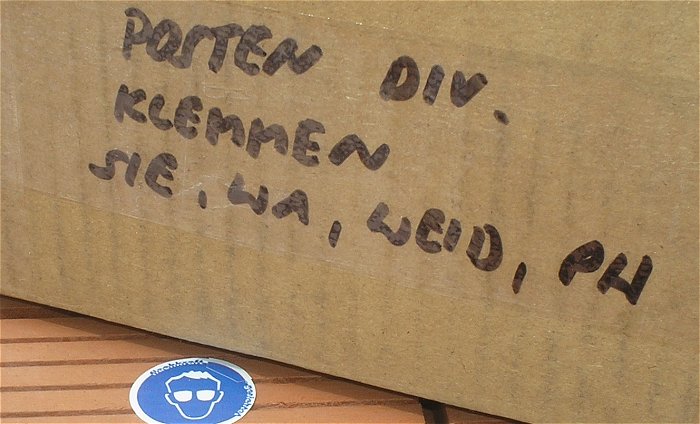 POSTEN DIV.
KLEMMEN
SIE, WA, WEID, PH